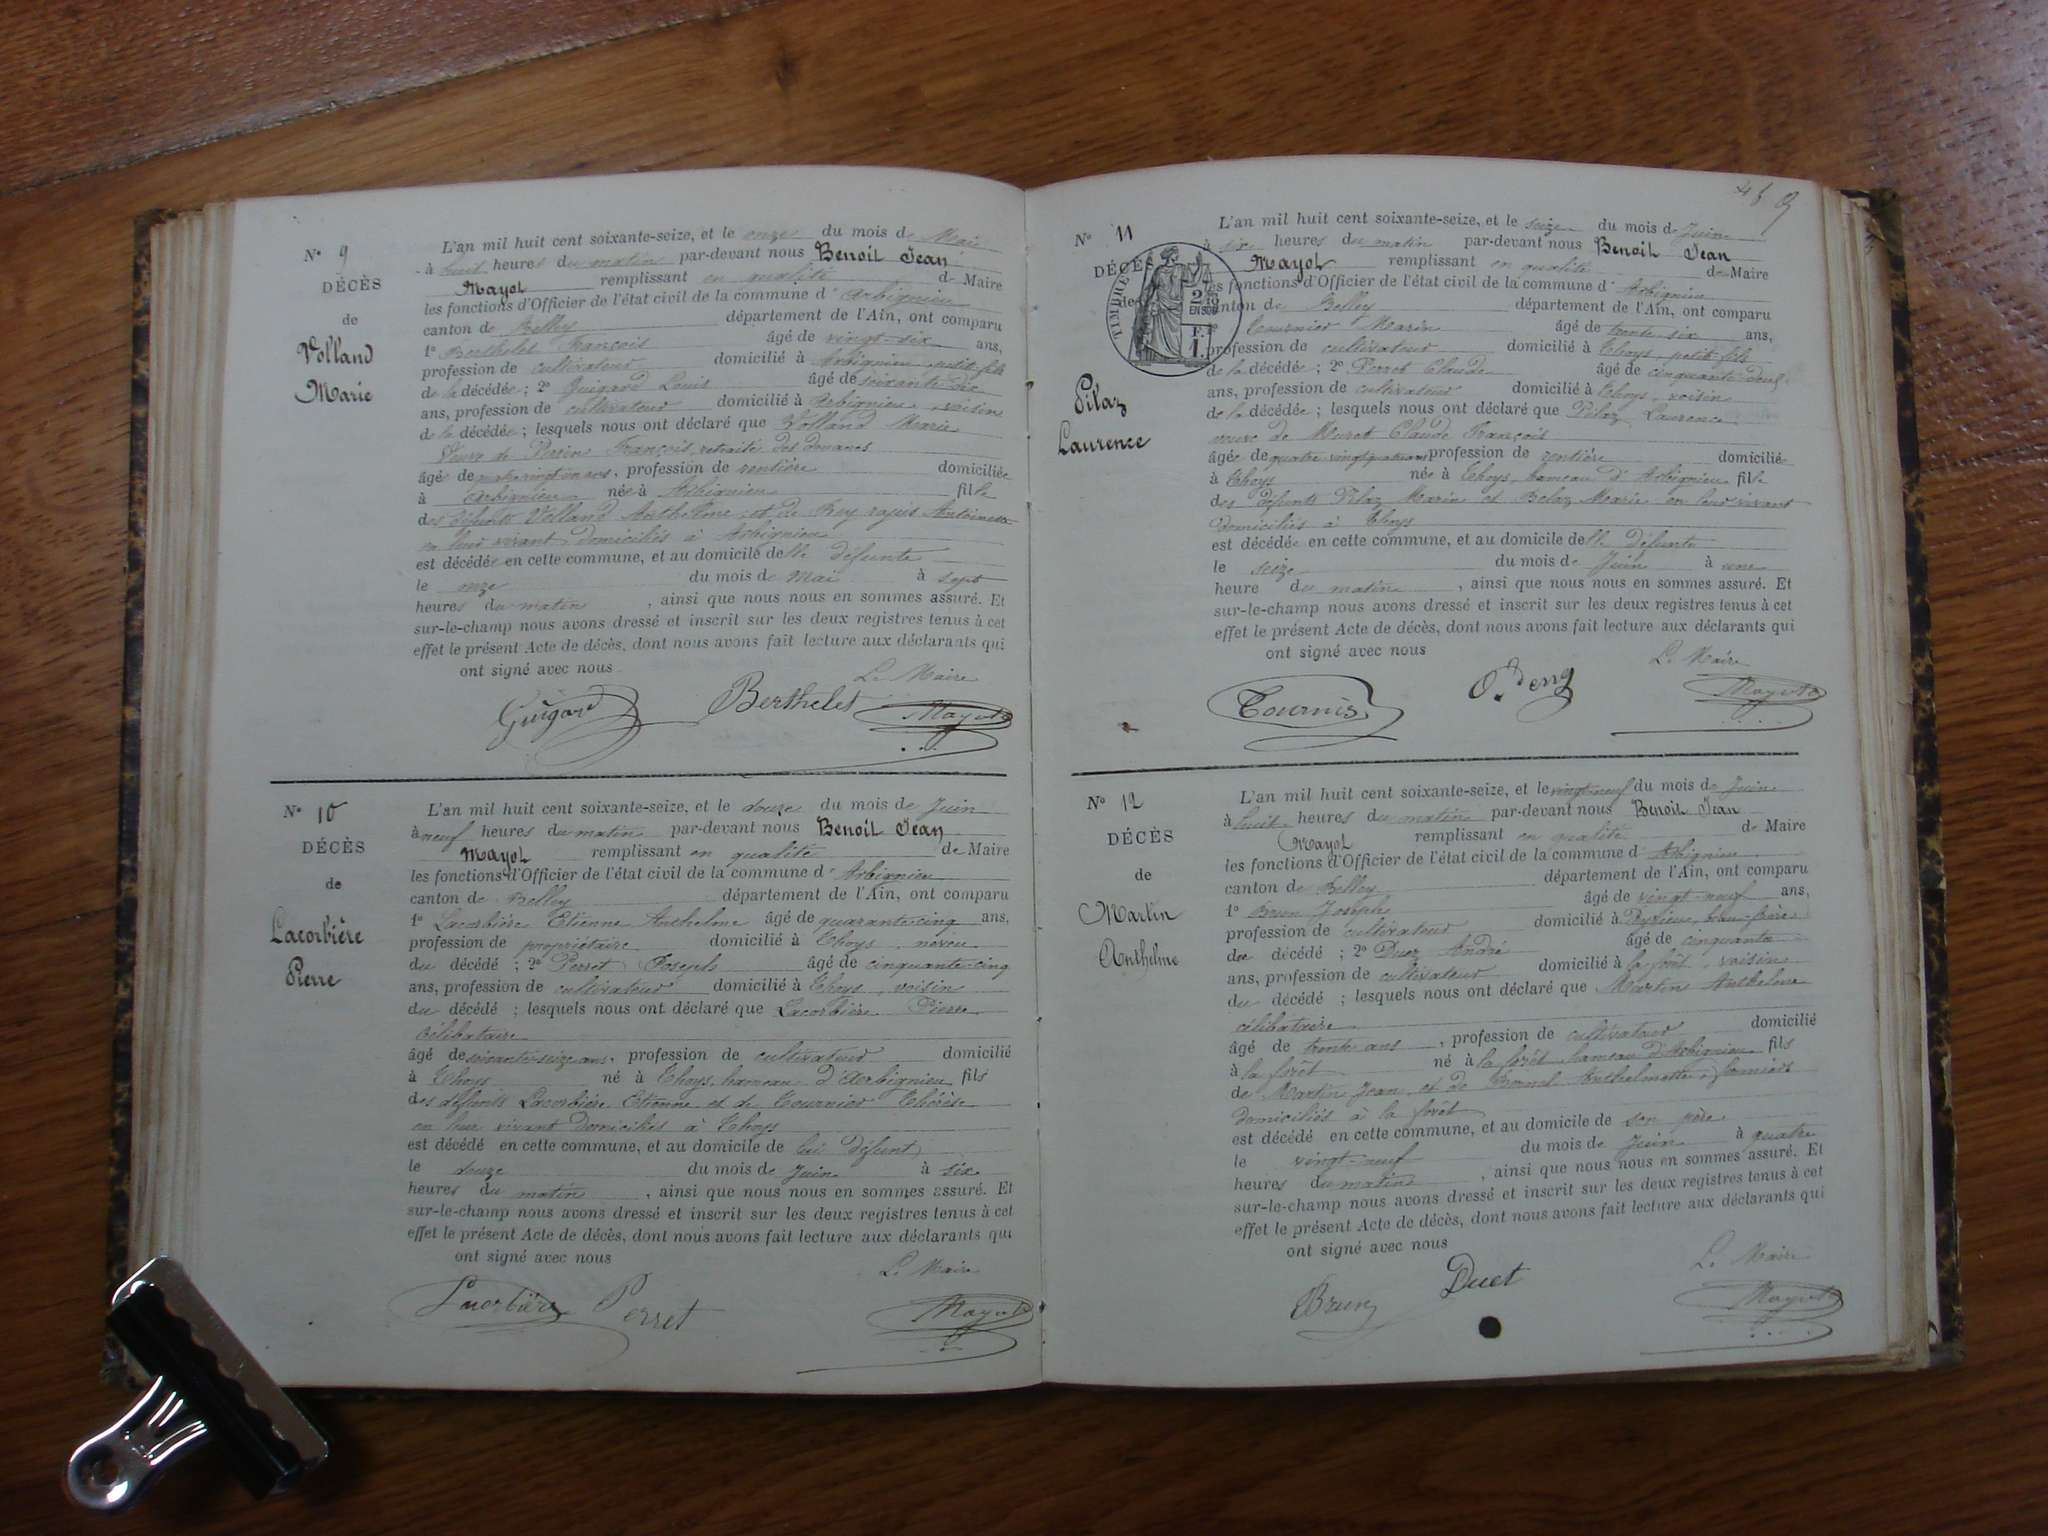 N° 9
DÉCÈS
de
Volland
Marie
L'an mil huit cent soixante-seize, et le onze du mois de Mai
à huit heures du matin par-devant nous Benoit Jean
Mayot remplissant en qualité de Maire
les fonctions d'Officier de l'état civil de la commune d'Arbignieu
canton de Belley département de l'Ain, ont comparu
1° Berthelet François âgé de vingt-six ans,
profession de cultivateur domicilié à Arbignieu, petit-fils
de la décédée ; 2° Guigard Louis âgé de soixante-dix
ans, profession de cultivateur domicilié à Arbignieu, voisin
de la décédée ; lesquels nous ont déclaré que Volland Marie
Veuve de Perrin François, retraité des douanes
âgée de quatre-vingt-un ans, profession de rentière domiciliée
à Arbignieu née à Arbignieu fille
des défunts Volland Anthelme et de Rey Antoinette
en leur vivant domiciliés à Arbignieu
est décédée en cette commune, et au domicile d'elle défunte
le onze du mois de Mai à sept
heures du matin, ainsi que nous nous en sommes assuré. Et
sur-le-champ nous avons dressé et inscrit sur les deux registres tenus à cet
effet le présent Acte de décès, dont nous avons fait lecture aux déclarants qui
ont signé avec nous
Le Maire
Guigard Berthelet Mayot
N° 10
DÉCÈS
de
Lacorbière
Pierre
L'an mil huit cent soixante-seize, et le douze du mois de Juin
à neuf heures du matin par-devant nous Benoit Jean
Mayot remplissant en qualité de Maire
les fonctions d'Officier de l'état civil de la commune d'Arbignieu
canton de Belley département de l'Ain, ont comparu
1° Lacorbière Etienne Anthelme âgé de quarante-cinq ans,
profession de propriétaire domicilié à Thoys, neveu
du décédé ; 2° Perret Joseph âgé de cinquante-cinq
ans, profession de cultivateur domicilié à Thoys, voisin
du décédé ; lesquels nous ont déclaré que Lacorbière Pierre
célibataire
âgé de soixante-seize ans, profession de cultivateur domicilié
à Thoys né à Thoys, hameau d'Arbignieu fils
des défunts Lacorbière Etienne et de Tournier Thérèse
en leur vivant domiciliés à Thoys
est décédé en cette commune, et au domicile de lui défunt
le douze du mois de Juin à six
heures du matin, ainsi que nous nous en sommes assuré. Et
sur-le-champ nous avons dressé et inscrit sur les deux registres tenus à cet
effet le présent Acte de décès, dont nous avons fait lecture aux déclarants qui
ont signé avec nous
Le Maire
Lacorbière Perret Mayot
N° 11
DÉCÈS
de
TIMBRE
Pilaz
Laurence
L'an mil huit cent soixante-seize, et le seize du mois de Juin
à six heures du matin par-devant nous Benoit Jean
Mayot remplissant en qualité de Maire
les fonctions d'Officier de l'état civil de la commune d'Arbignieu
canton de Belley département de l'Ain, ont comparu
Tournier Marin âgé de trente-six ans,
profession de cultivateur domicilié à Thoys, petit-fils
de la décédée ; 2° Perret Claude âgé de cinquante-deux
ans, profession de cultivateur domicilié à Thoys, voisin
de la décédée ; lesquels nous ont déclaré que Pilaz Laurence
veuve de Muret Claude François
âgée de quatre vingt profession de rentière domiciliée
à Thoys née à Thoys, hameau d'Arbignieu fille
des défunts Pilaz Marin et Belaz Marie en leur vivant
domiciliés à Thoys
est décédée en cette commune, et au domicile d'elle défunte
le seize du mois de Juin à une
heure du matin, ainsi que nous nous en sommes assuré. Et
sur-le-champ nous avons dressé et inscrit sur les deux registres tenus à cet
effet le présent Acte de décès, dont nous avons fait lecture aux déclarants qui
ont signé avec nous
Le Maire
Tournier Mayot
N° 12
DÉCÈS
de
Martin
Anthelme
L'an mil huit cent soixante-seize, et le vingt-neuf du mois de Juin
à huit heures du matin par-devant nous Benoit Jean
Mayot remplissant en qualité de Maire
les fonctions d'Officier de l'état civil de la commune d'Arbignieu
canton de Belley département de l'Ain, ont comparu
1° Brun Joseph âgé de vingt-neuf ans,
profession de cultivateur domicilié à Peyzieu, beau-frère
du décédé ; 2° Duet André âgé de cinquante
ans, profession de cultivateur domicilié à la forêt, voisin
du décédé ; lesquels nous ont déclaré que Martin Anthelme
célibataire
âgé de trente ans, profession de cultivateur domicilié
à la forêt né à la forêt, hameau d'Arbignieu fils
de Martin Jean et de Anthelmette, fermiers
domiciliés à la forêt
est décédé en cette commune, et au domicile de son père
le vingt-neuf du mois de Juin à quatre
heures du matin, ainsi que nous nous en sommes assuré. Et
sur-le-champ nous avons dressé et inscrit sur les deux registres tenus à cet
effet le présent Acte de décès, dont nous avons fait lecture aux déclarants qui
ont signé avec nous
Le Maire
Brun Duet Mayot